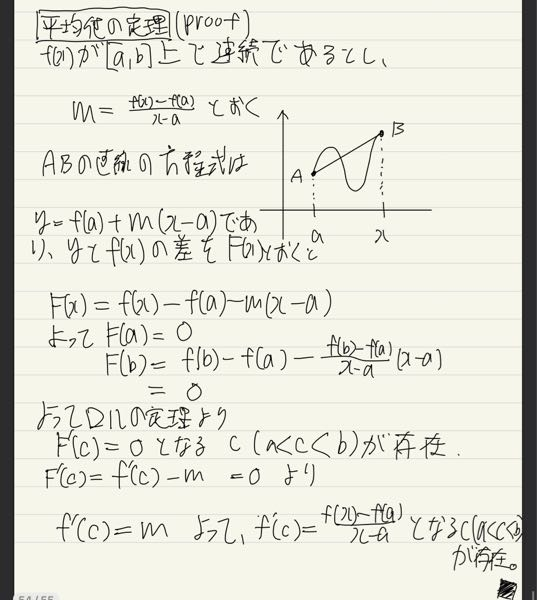 平均値の定理 (proof)
f(x)が[a,b]上で連続であるとし、
m = f(x)-f(a)/x-a とおく
ABの直線の方程式は
A
B
a
x
y=f(a)+m(x-a)であ
り、yとf(x)の差をF(x)とおくと
F(x)=f(x)-f(a)-m(x-a)
よって F(a)=0
F(b)=f(b)-f(a)-f(b)-f(a)/x-a(x-a)
=0
よってロルの定理より
F'(c)=0となる c(a<c<b)が存在.
F'(c)=f'(c)-m =0 より
f'(c)=m よって、f'(c)=f(x)-f(a)/x-a となるc(a<c<b)
が存在。
54/55